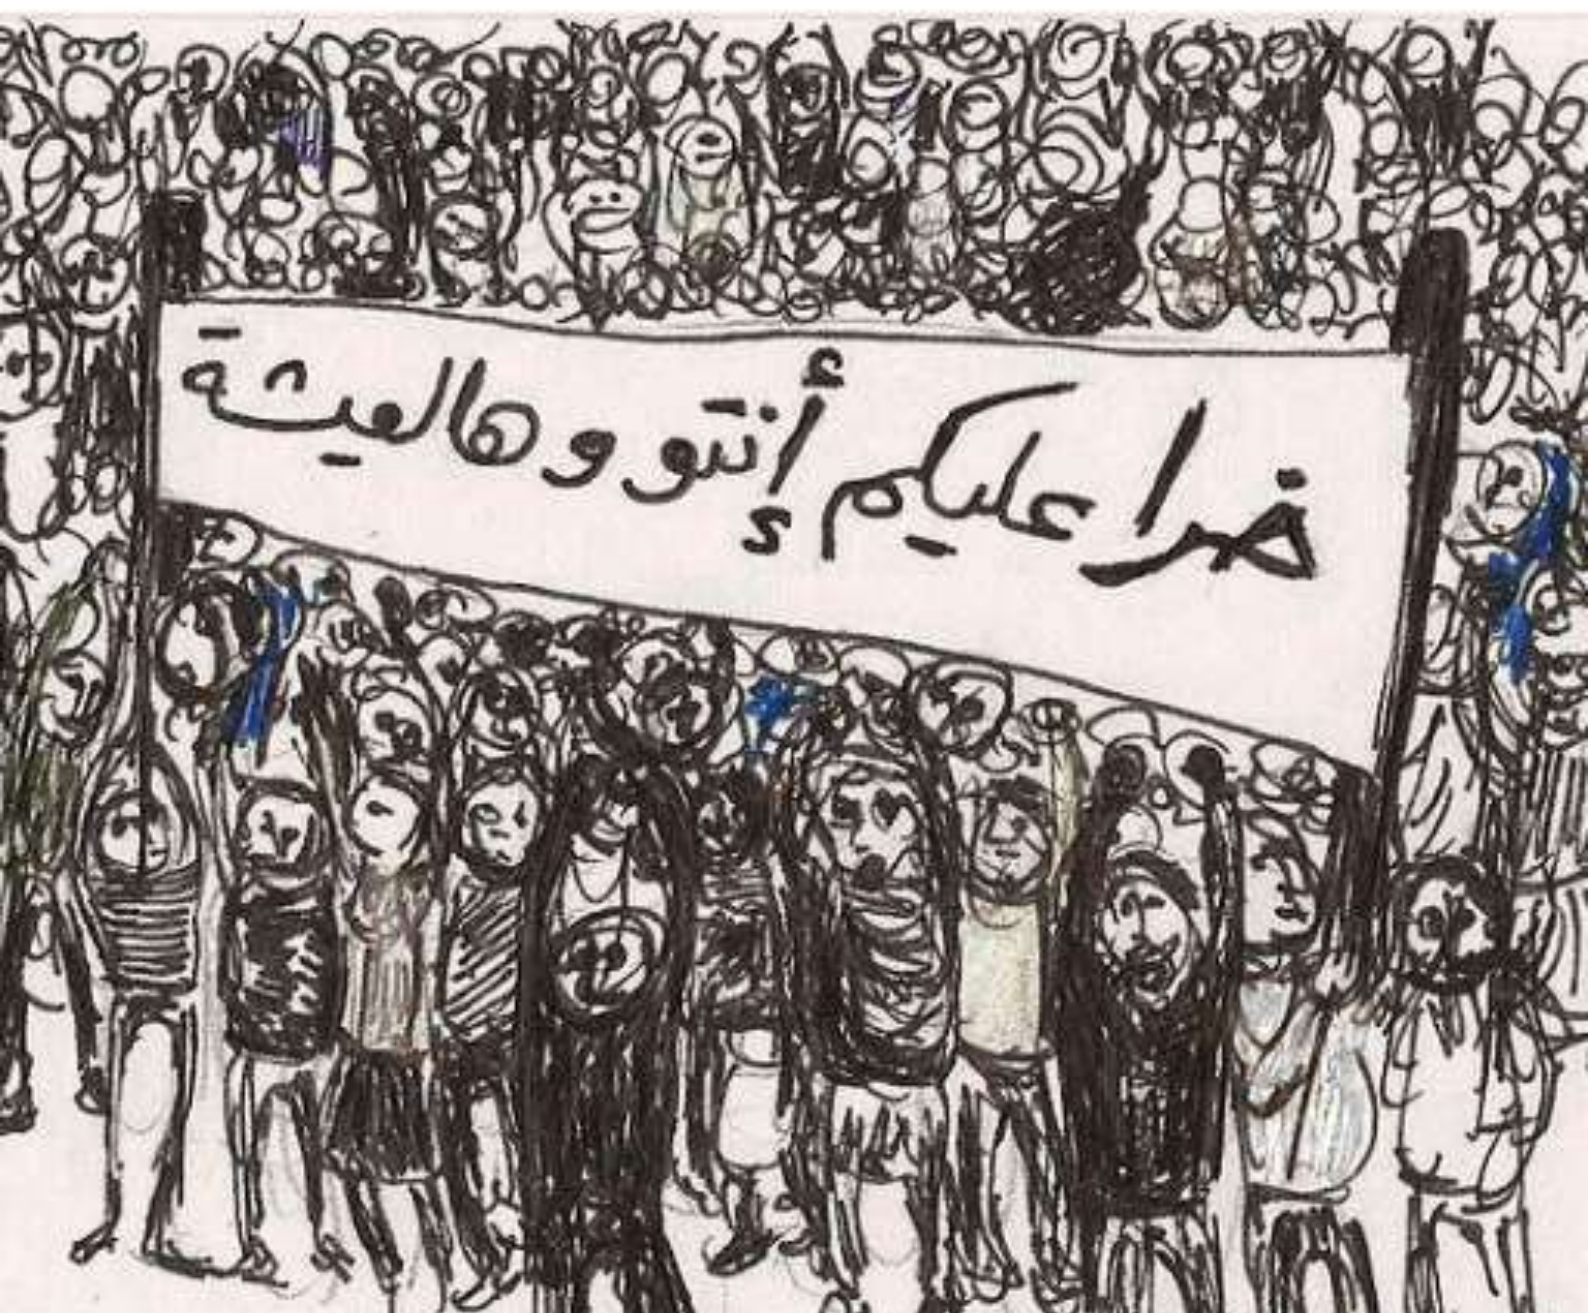 خرا عليكم أنتو وهالعيشة